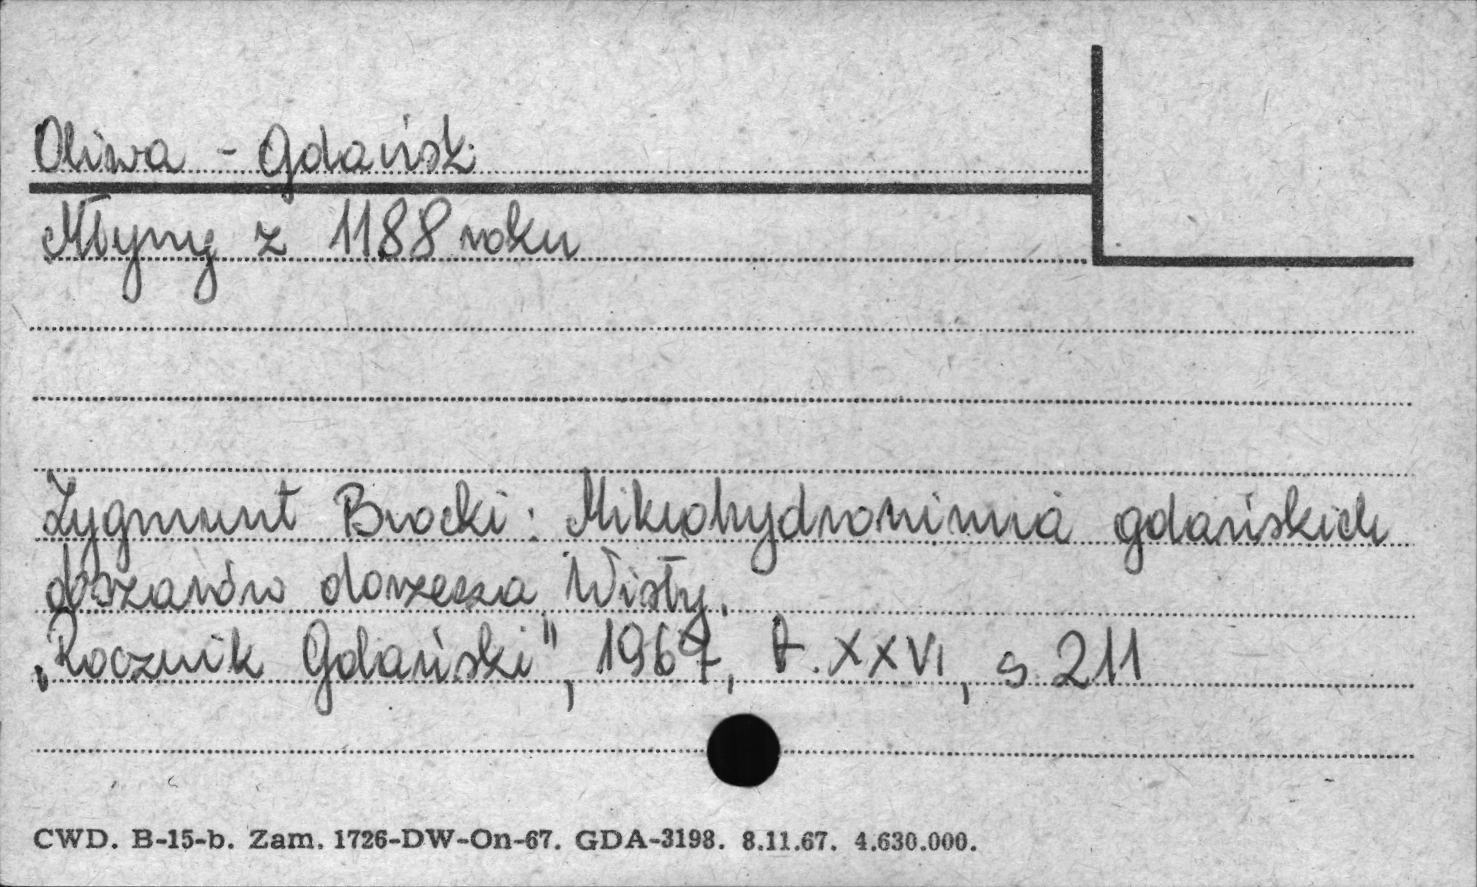 Oliwa - Gdańsk
Młyny z 1188 roku
Zygmunt Brocki: Mikrohydronimia gdańskich
obszarów dorzecza Wisły.
„Rocznik Gdański", 1967, t. XXVI, s. 211
CWD. B-15-b. Zam. 1726-DW-On-67. GDA-3198. 8.11.67. 4.630.000.